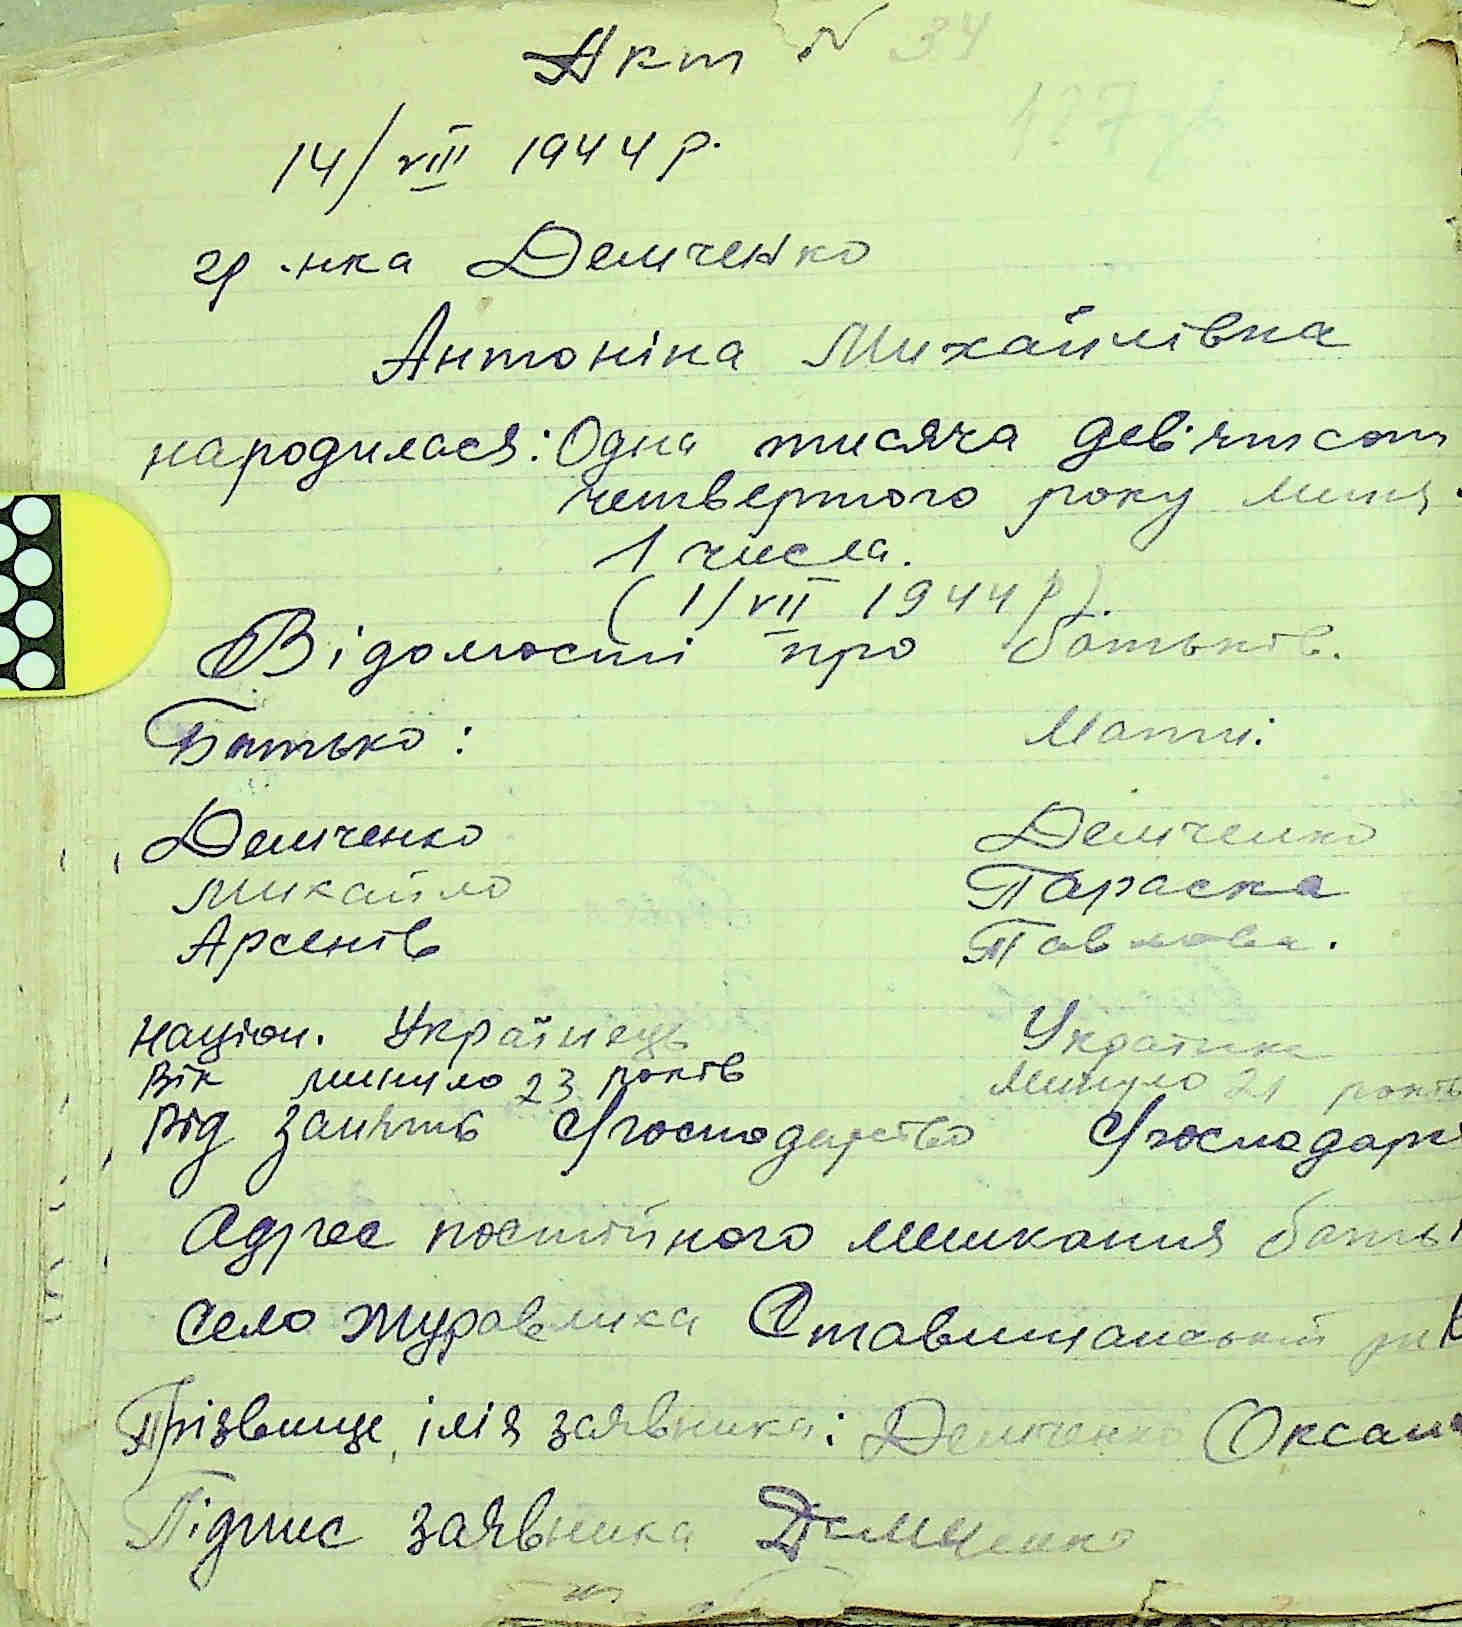 Акт № 34
14/VIII 1944 р.
гр.нка Демченко
Антоніна Михайлівна
народилася: Одна тисяча дев'ятсот
четвертого року
1 числа.
(1/VII 1944 р).
Відомості про батьків.
Батько: Мати:
Демченко Демченко
Михайло Параска
Арсенів Павлова.
націон. Українець Українка
Вік минуло 23 років Минуло 21 років
Від занять С/господарство С/господарс
Адрес постійного мешкання батьк
село Журавлиха Ставищанський
Прізвище, імія заявника: Демченко Оксана
Підпис заявника Демченко